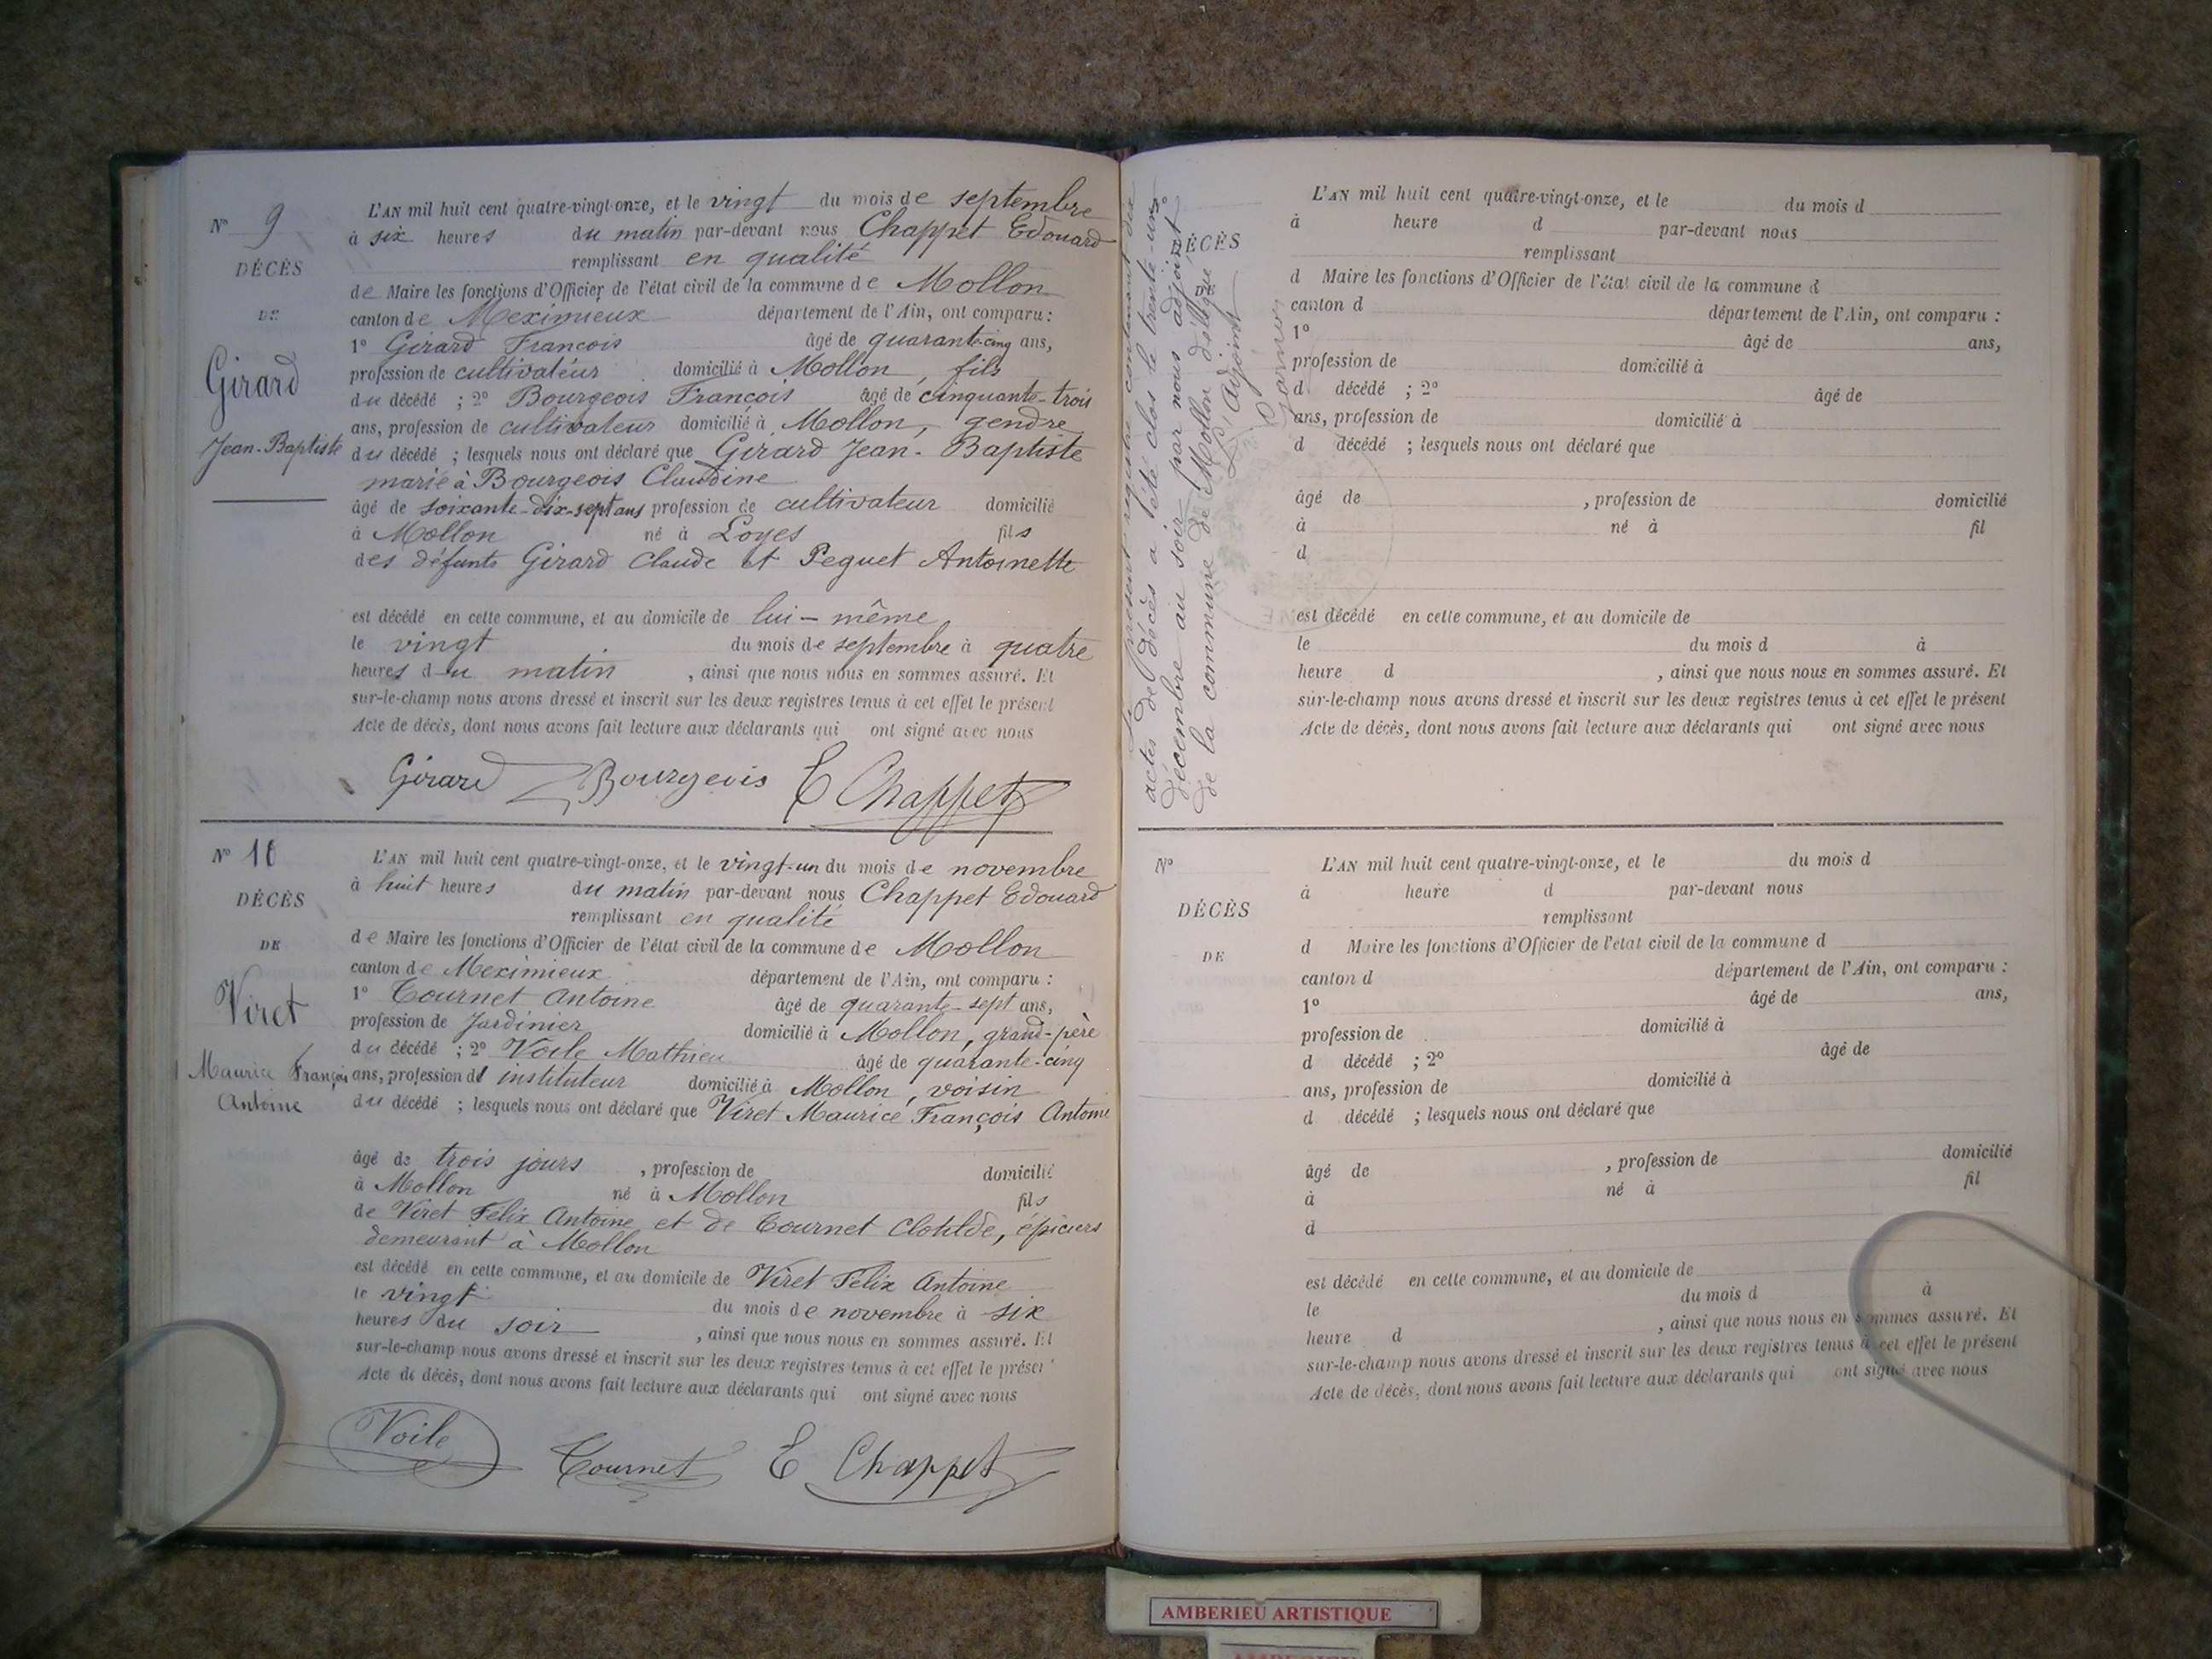 N° 9
DÉCÈS
DE
Girard
Jean-Baptiste
L'AN mil huit cent quatre-vingt-onze, et le vingt du mois de septembre
à six heures du matin par-devant nous Chappet Edouard
remplissant en qualité
de Maire les fonctions d'Officier de l'état civil de la commune de Mollon
canton de Meximieux département de l'Ain, ont comparu :
1° Girard François âgé de quarante-cinq ans,
profession de cultivateur domicilié à Mollon, fils
du décédé ; 2° Bourgeois François âgé de cinquante-trois
ans, profession de cultivateur domicilié à Mollon, gendre
du décédé ; lesquels nous ont déclaré que Girard Jean-Baptiste
marié à Bourgeois Claudine
âgé de soixante-dix-sept ans profession de cultivateur domicilié
à Mollon né à Loyes fils
des défunts Girard Claude et Peguet Antoinette
est décédé en cette commune, et au domicile de lui-même
le vingt du mois de septembre à quatre
heures du matin, ainsi que nous nous en sommes assuré. Et
sur-le-champ nous avons dressé et inscrit sur les deux registres tenus à cet effet le présent
Acte de décès, dont nous avons fait lecture aux déclarants qui ont signé avec nous
Girard Bourgeois E Chappet
N° 10
DÉCÈS
DE
Viret
Maurice François
Antoine
L'AN mil huit cent quatre-vingt-onze, et le vingt-un du mois de novembre
à huit heures du matin par-devant nous Chappet Edouard
remplissant en qualité
de Maire les fonctions d'Officier de l'état civil de la commune de Mollon
canton de Meximieux département de l'Ain, ont comparu :
1° Tournet Antoine âgé de quarante-sept ans,
profession de Jardinier domicilié à Mollon, grand-père
du décédé ; 2° Voile Mathieu âgé de quarante-cinq
ans, profession d' instituteur domicilié à Mollon, voisin
du décédé ; lesquels nous ont déclaré que Viret Maurice François Antoine
âgé de trois jours, profession de domicilié
à Mollon né à Mollon fils
de Viret Félix Antoine et de Tournet Clotilde, épiciers
demeurant à Mollon
est décédé en cette commune, et au domicile de Viret Félix Antoine
le vingt du mois de novembre à six
heures du soir, ainsi que nous nous en sommes assuré. Et
sur-le-champ nous avons dressé et inscrit sur les deux registres tenus à cet effet le présent
Acte de décès, dont nous avons fait lecture aux déclarants qui ont signé avec nous
Voile Tournet E Chappet
Le présent registre contenant dix
actes de décès a été clos le trente-un
décembre au soir par nous adjoint
de la commune de Mollon délégué
L'Adjoint
DÉCÈS
L'AN mil huit cent quatre-vingt-onze, et le du mois d
à heure d par-devant nous
remplissant
d Maire les fonctions d'Officier de l'état civil de la commune d
canton d département de l'Ain, ont comparu :
1° âgé de ans,
profession de domicilié à
d décédé ; 2° âgé de
ans, profession de domicilié à
d décédé ; lesquels nous ont déclaré que
âgé de , profession de domicilié
à né à fil
d
est décédé en cette commune, et au domicile de
le du mois d à
heure d , ainsi que nous nous en sommes assuré. Et
sur-le-champ nous avons dressé et inscrit sur les deux registres tenus à cet effet le présent
Acte de décès, dont nous avons fait lecture aux déclarants qui ont signé avec nous
N°
DÉCÈS
DE
L'AN mil huit cent quatre-vingt-onze, et le du mois d
à heure d par-devant nous
remplissant
d Maire les fonctions d'Officier de l'état civil de la commune d
canton d département de l'Ain, ont comparu :
1° âgé de ans,
profession de domicilié à
d décédé ; 2° âgé de
ans, profession de domicilié à
d décédé ; lesquels nous ont déclaré que
âgé de , profession de domicilié
à né à fil
d
est décédé en cette commune, et au domicile de
le du mois d à
heure d , ainsi que nous nous en sommes assuré. Et
sur-le-champ nous avons dressé et inscrit sur les deux registres tenus à cet effet le présent
Acte de décès, dont nous avons fait lecture aux déclarants qui ont signé avec nous
AMBERIEU ARTISTIQUE